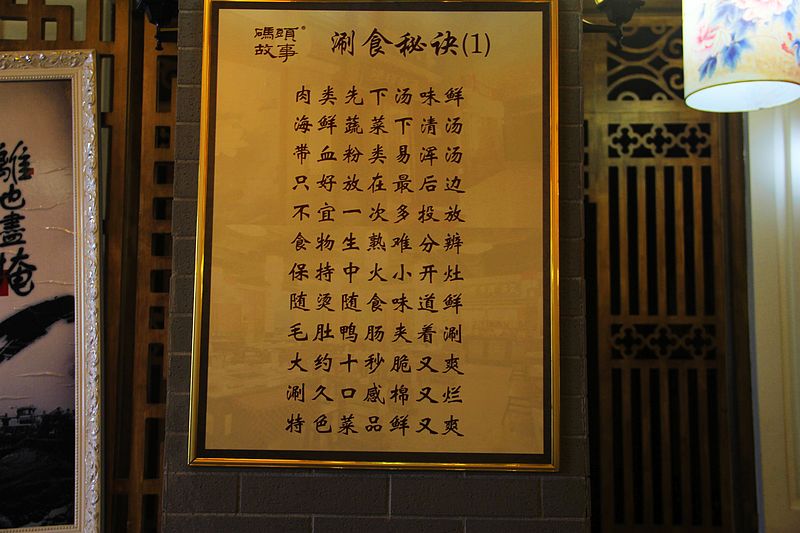 碼頭故事®
涮食秘诀(1)
肉类先下汤味鲜
海鲜蔬菜下清汤
带血粉类易浑汤
只好放在最后边
不宜一次多投放
食物生熟难分辨
保持中火小开灶
随烫随食味道鲜
毛肚鸭肠夹着涮
大约十秒脆又爽
涮久口感棉又烂
特色菜品鲜又爽
離也盡掩